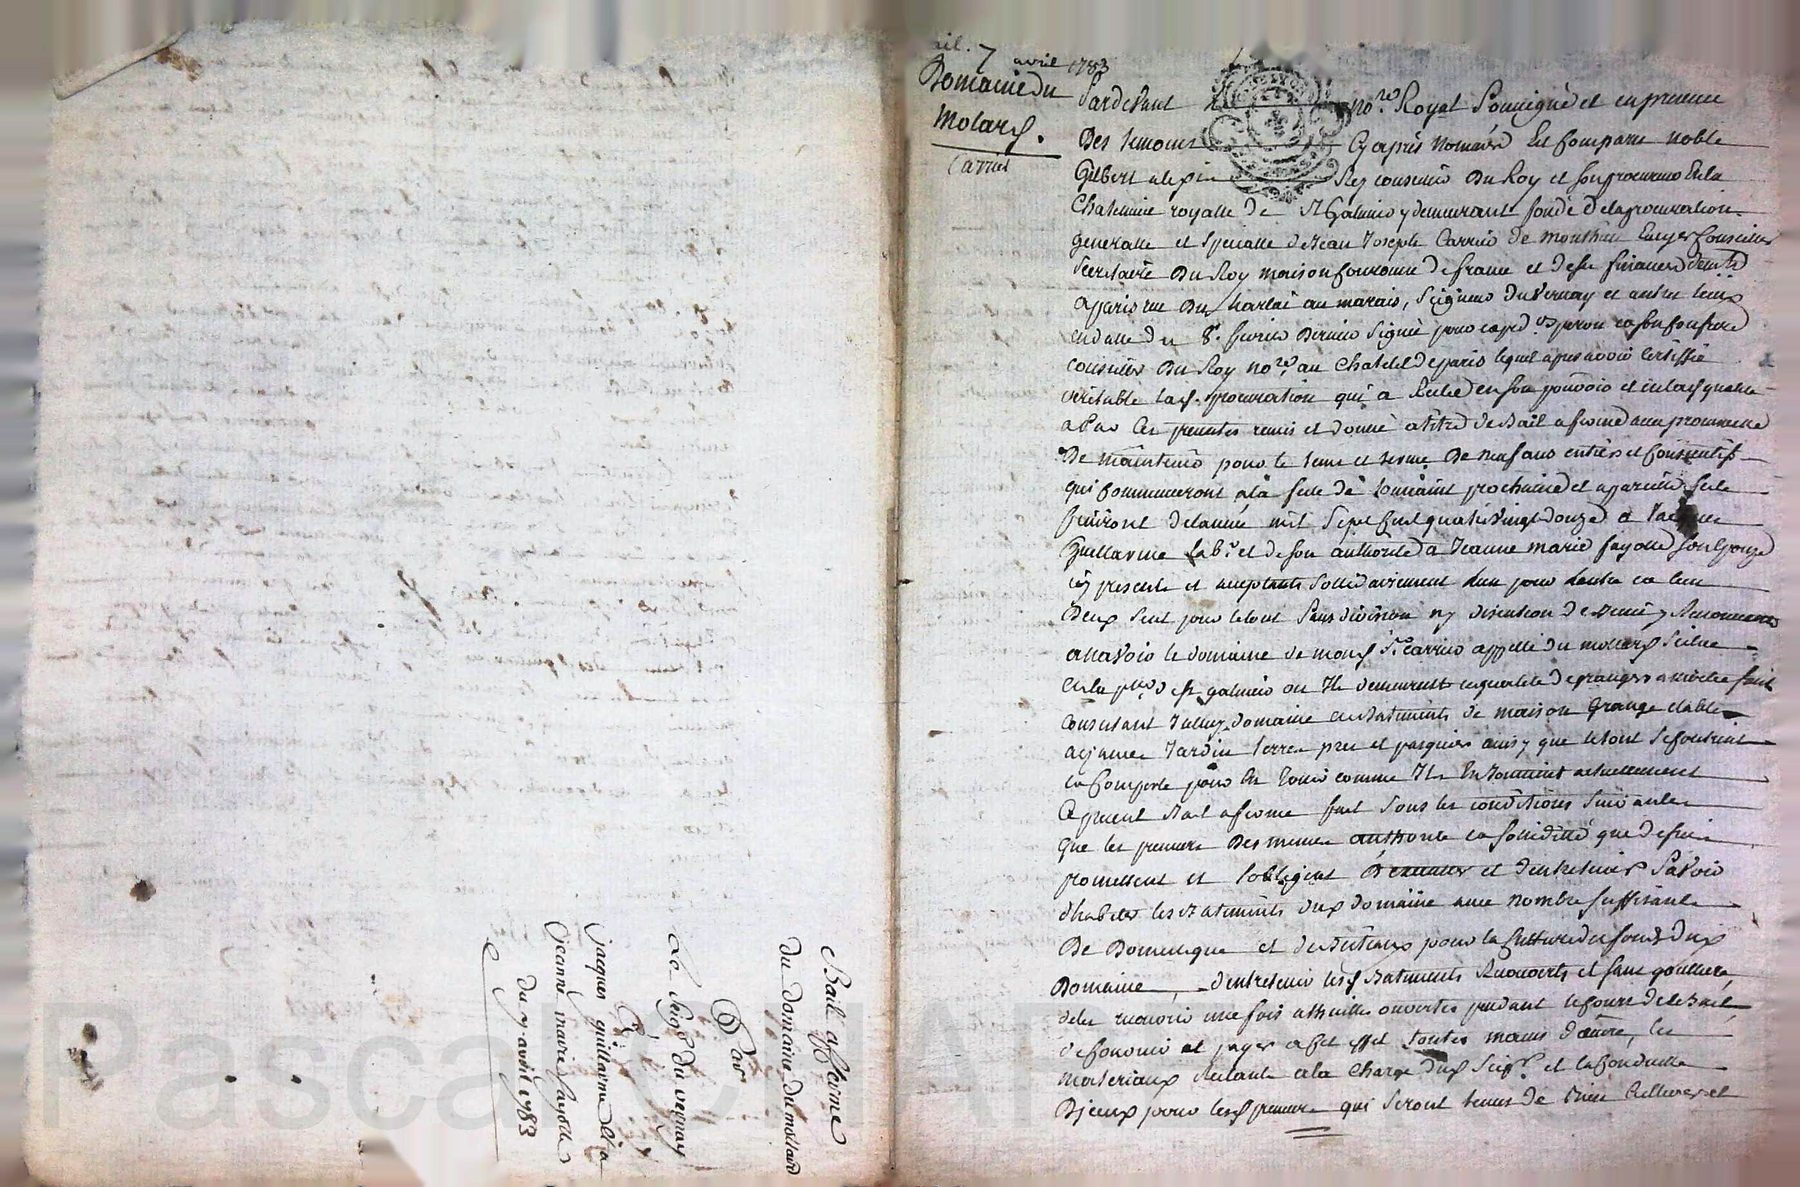 Bail afferme
du domaine du mollard
Par
Le Seigr du vernay
a
jacques guillavme et a
jeanne marie fayolle
du 7 avril 1783
ail. 7 avril 1783
Domaine du
Molard.
Carrier
Pardevant no.re Royal Soussigné et en presence
Des temoins Cy après nommés Est Comparu noble
Gilbert alexis Rey conseiller Du Roy et son procureur En la
Chatelenie royalle de St Galmier y demeurant fondé de la procuration
generalle et Specialle de Jean Joseph Carrier de Monthieu Ecuyer Conseiller
Secretaire Du Roy maison Couronne de france et de ses finances
a paris rue Du harlai au marais, Seigneur Du Vernay et autres lieux
en datte du 8. fevrier Dernier Signée pour et son Confrere
conseiller Du Roy no.re au Chatelet de paris lequel apres avoir Certiffié
véritable lad. procuration qui a Resté en son pouvoir et en lad. qualité
a par Ces presentes remis et donné a titre de Bail a ferme avec promesse
De maintenir pour le tems et terme De neuf ans entiers et Consecutifs
qui Commenceront a la fete de toussaint prochaine et a pareille fete
finiront de l'année mil Sept Cent quatre vingt douze a Jacques
Guillavme Lab.r et de son authorité a Jeanne marie fayolle Son Epouse
icy presents et acceptants Sollidairement L'un pour L'autre et L'un
Deux Seul pour le tout Sans division ny discution
a Savoir le domaine de mond. Sr. Carrier appellé du mollard Scitué
En la pss.e de St galmier ou Ils demeurent en qualité de grangers a moitié fruit
Consistant Icelluy domaine en Batiments de maison Grange etable
aizances Jardin terres prés et pasquiers ainsy que le tout Se Contient
et Comporte pour En Jouir comme Ils En Jouissent actuellement
Ce present Bail a ferme fait Sous les conditions Suivantes
que les preneurs De meme authorité et Solidité que dessus
promettent et S'obligent D'executer et d'entretenir Savoir
d'habiter les Batiments dud. Domaine avec nombre Suffisants
De Domestique et de Bestiaux pour la Culture du fonds dud.
Domaine, D'entretenir lesd. Batiments Recouverts et Sans gouttiere,
de les recouvrir une fois a thuilles ouvertes pendant le Cours de ce Bail
de fournir et payer a Cet effet toutes mains d'œuvre, les
materiaux Restants a la Charge dud. Seigr. et la Conduitte
D'yceux pour lesd. preneurs qui Seront tenus de Bien Cultiver et